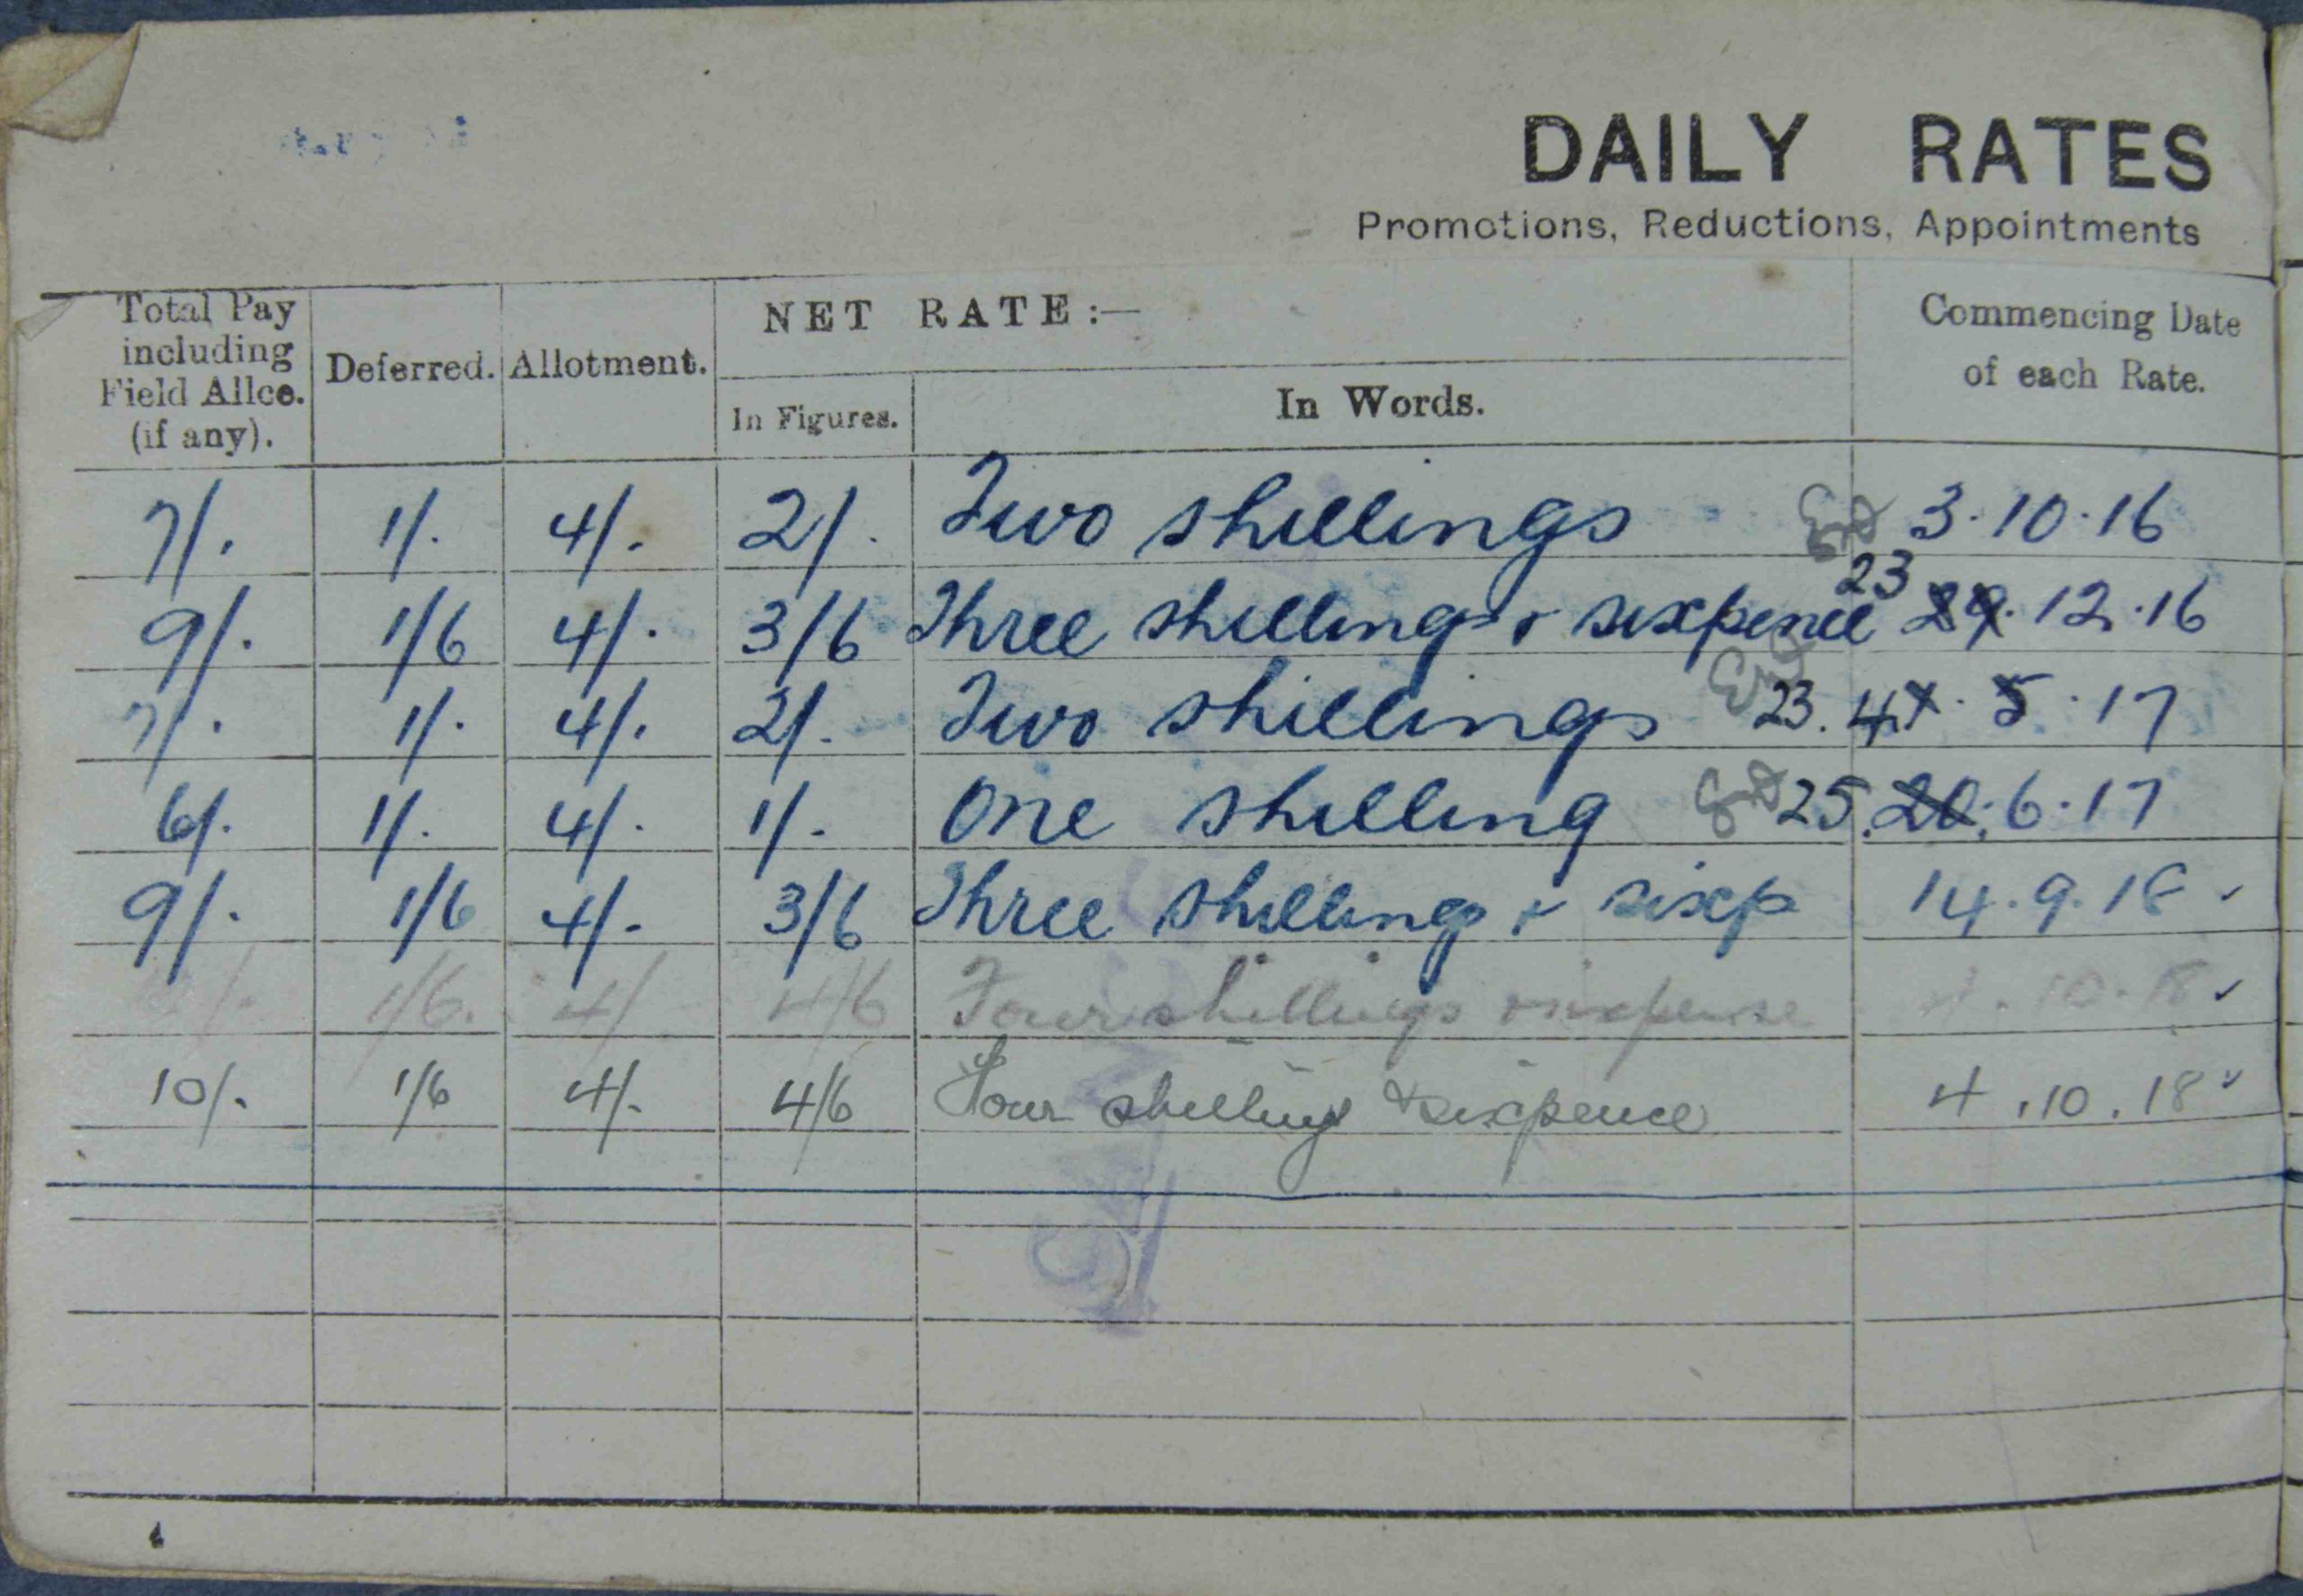 DAILY RATES
Promotions, Reductions, Appointments
Total Pay including Field Allce. (if any).
Deferred.
Allotment.
NET RATE:—
In Figures.
In Words.
Commencing Date of each Rate.
7/. 1/. 4/. 2/. Two shillings 3.10.16
9/. 1/6 4/. 3/6 Three shillings & sixpence 23 29.12.16
7/. 1/. 4/. 2/. Two shillings 23.4 5.17
6/. 1/. 4/. 1/. One shilling 25.20.6.17
9/. 1/6 4/- 3/6 Three shillings & sixp 14.9.18
1/6. 4/ 4/6 Four shillings & sixpense 10.18
10/. 1/6 4/. 4/6 Four shillings & sixpence 4.10.18